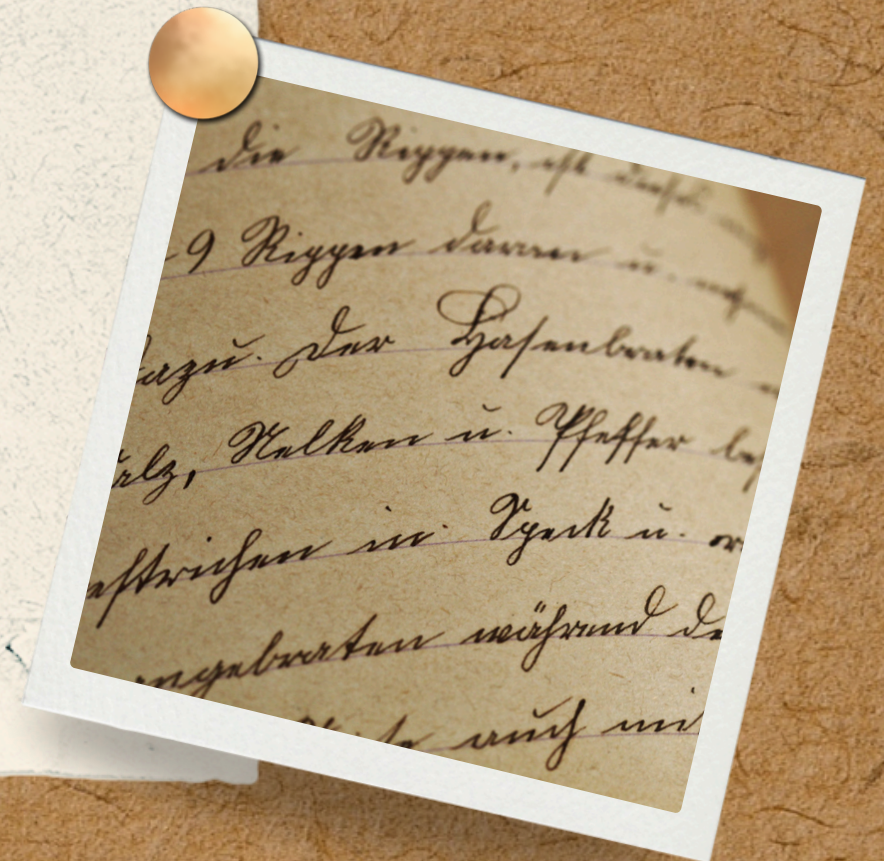 die Rippen, ist
9 Rippen daran u.
dazu. Der Hasenbraten
Salz, Nelken u. Pfeffer
estrichen in Speck u.
angebraten während de
auch mi